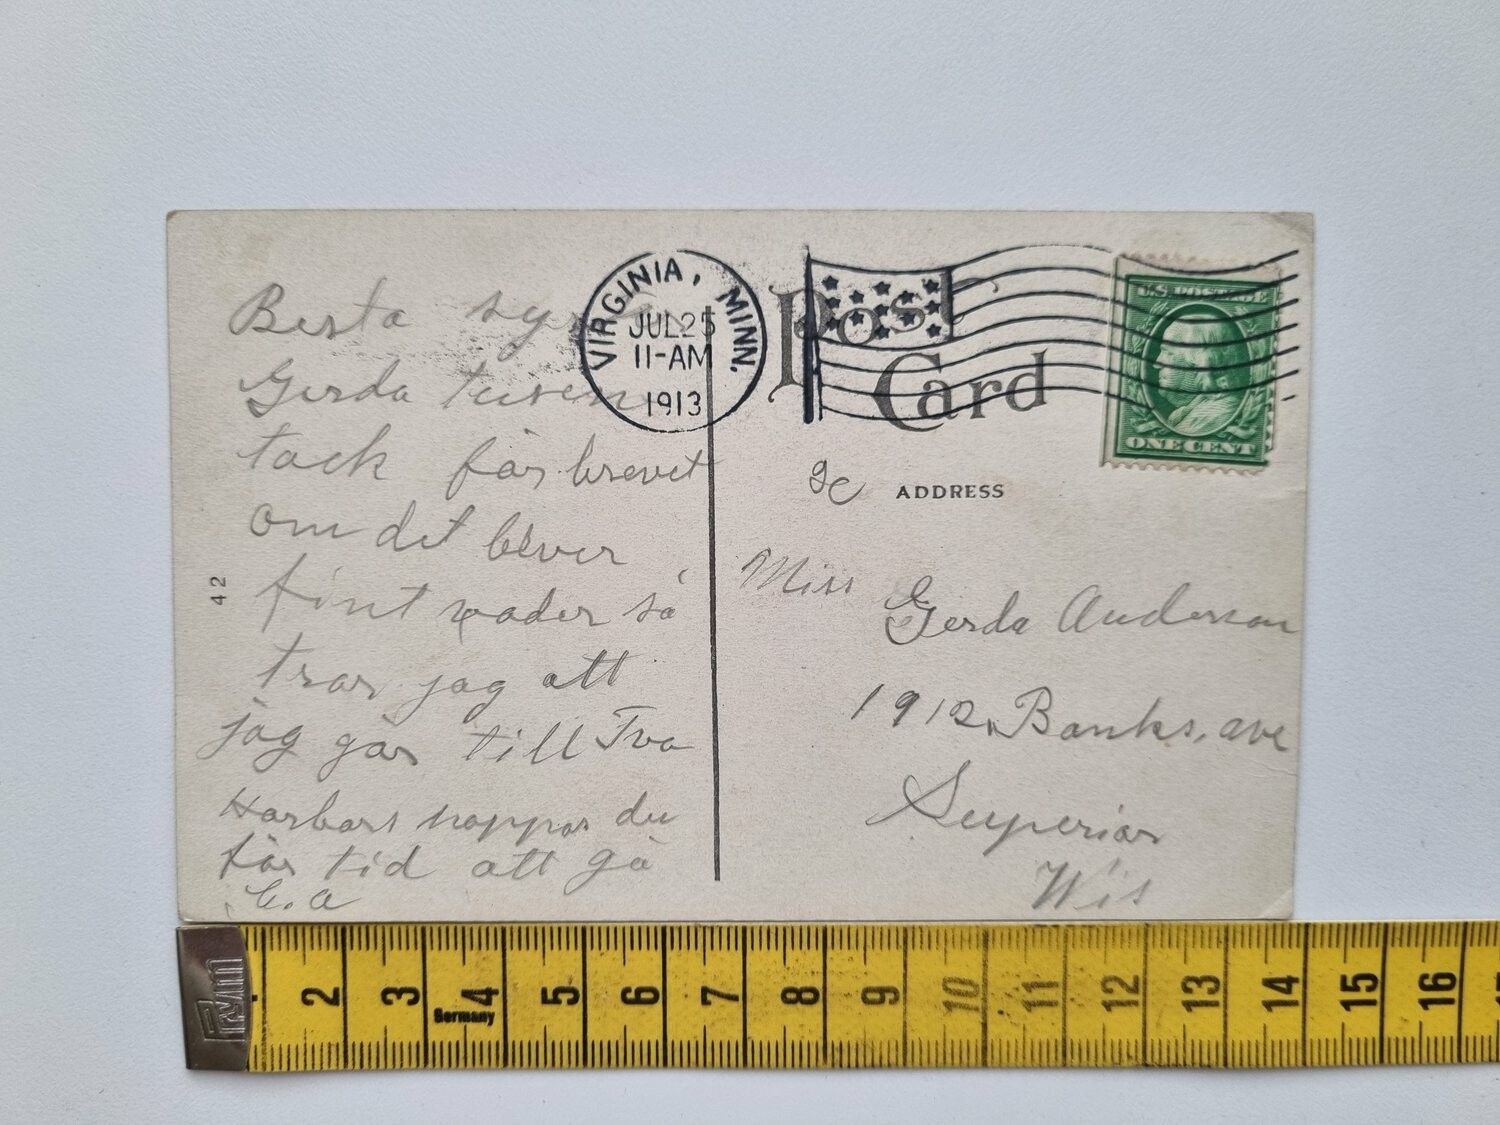 Besta
Gerda tusen
tack får brevet
om det bliver
fint vader så
tror jag att
jag går till Tvo
Harbars hoppas du
får tid att gå
C.A
42
VIRGINIA, MINN.
JUL 25
11-AM
1913
Post
Card
U.S. POSTAGE
ONE CENT
ADDRESS
Miss Gerda Anderson
1912 Banks. ave
Superior
Wis
Prym
2 3 4 5 6 7 8 9 10 11 12 13 14 15 16
Germany